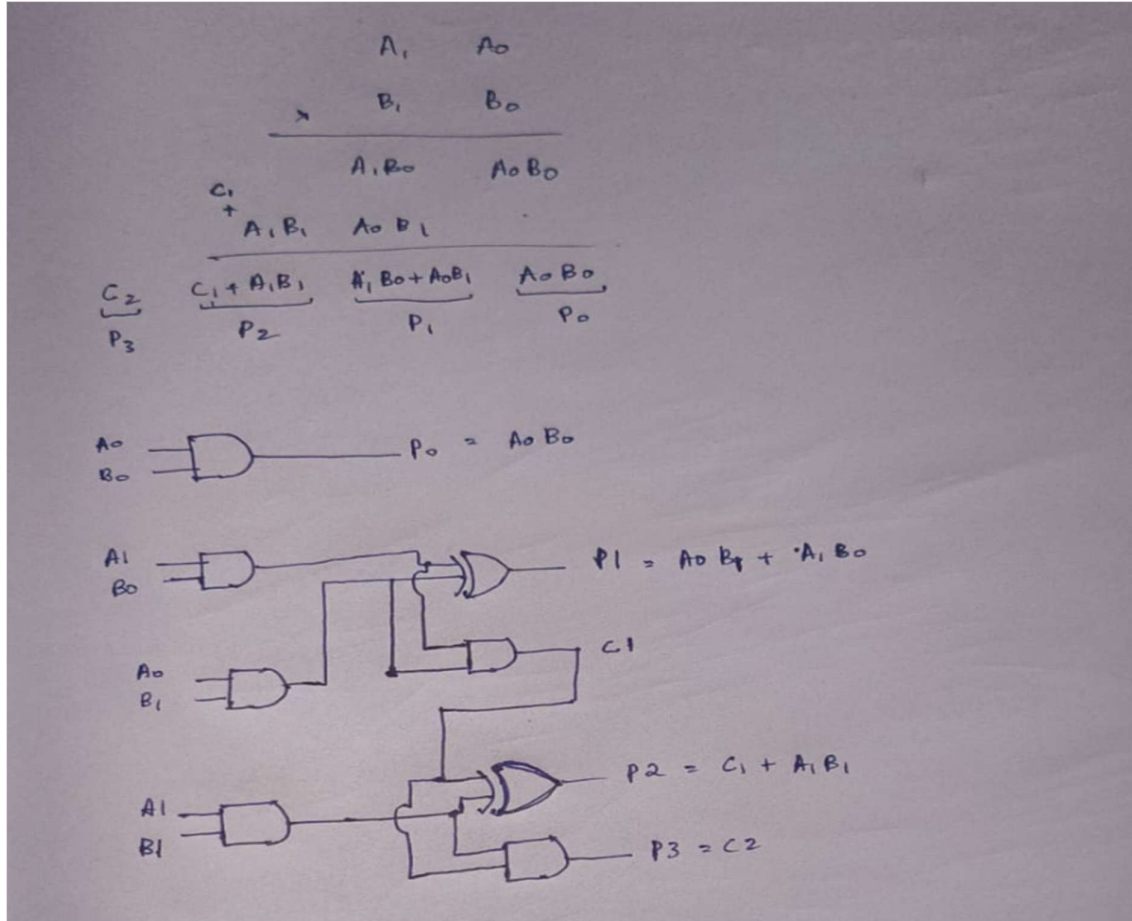 A₁ A₀
× B₁ B₀
A₁B₀ A₀B₀
C₁
+
A₁B₁ A₀B₁
C₂ C₁+A₁B₁ A₁B₀+A₀B₁ A₀B₀
P₃ P₂ P₁ P₀
A₀
B₀
P₀ = A₀B₀
A1
B₀
P1 = A₀B₁ + A₁B₀
C1
A₀
B₁
P2 = C₁ + A₁B₁
A1
B1
P3 = C2